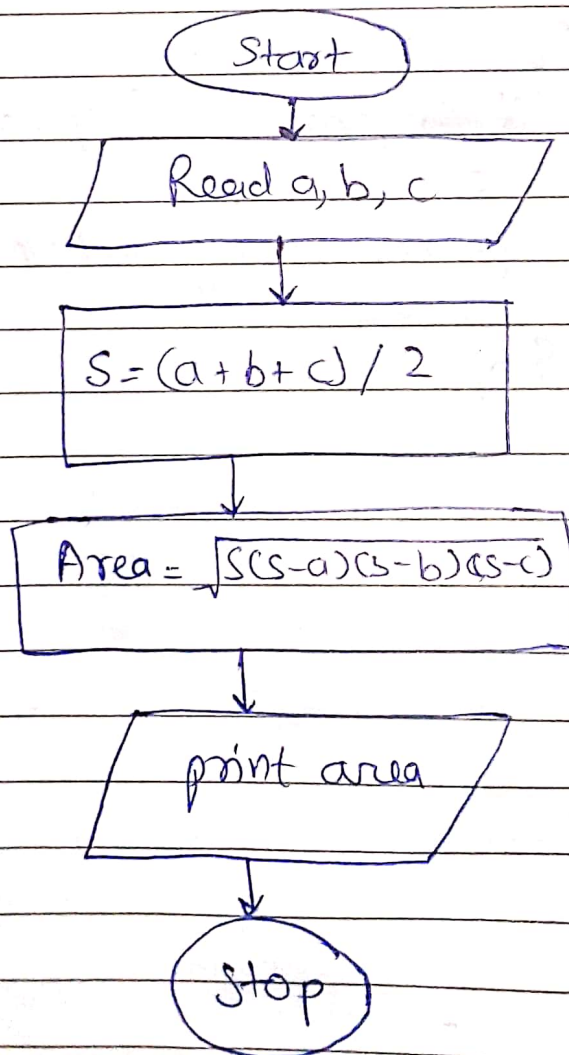 Start
Read a, b, c
S = (a + b + c) / 2
Area = √S(S-a)(S-b)(S-c)
print area
Stop